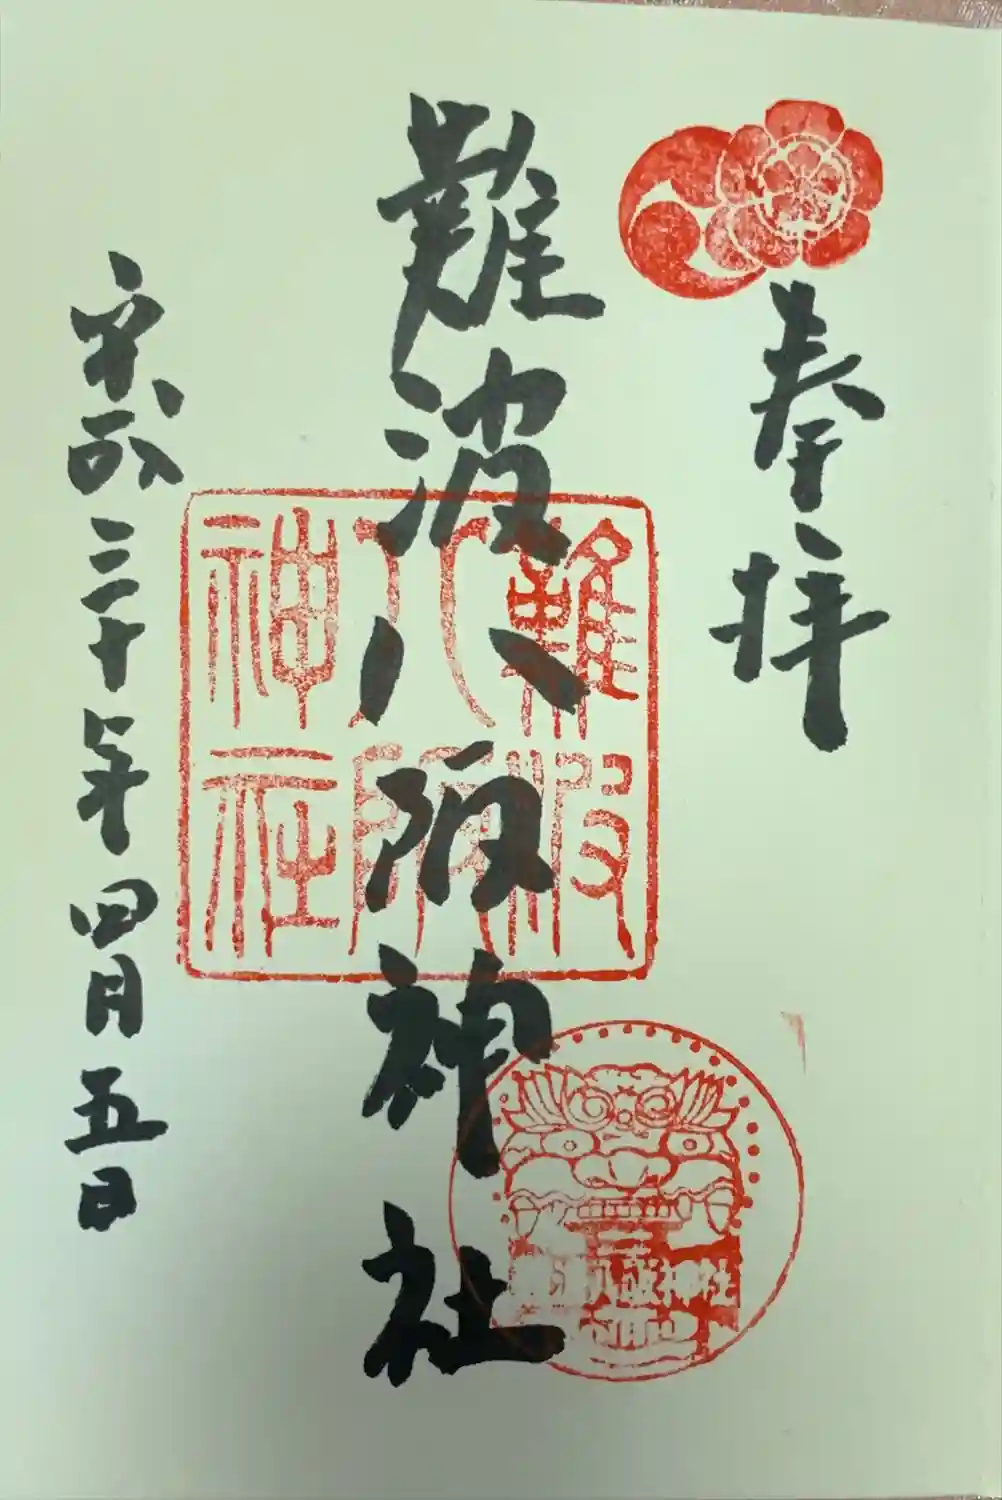 奉拝
難波八阪神社
平成三十年四月五日
難波
八阪
神社
難波八阪神社